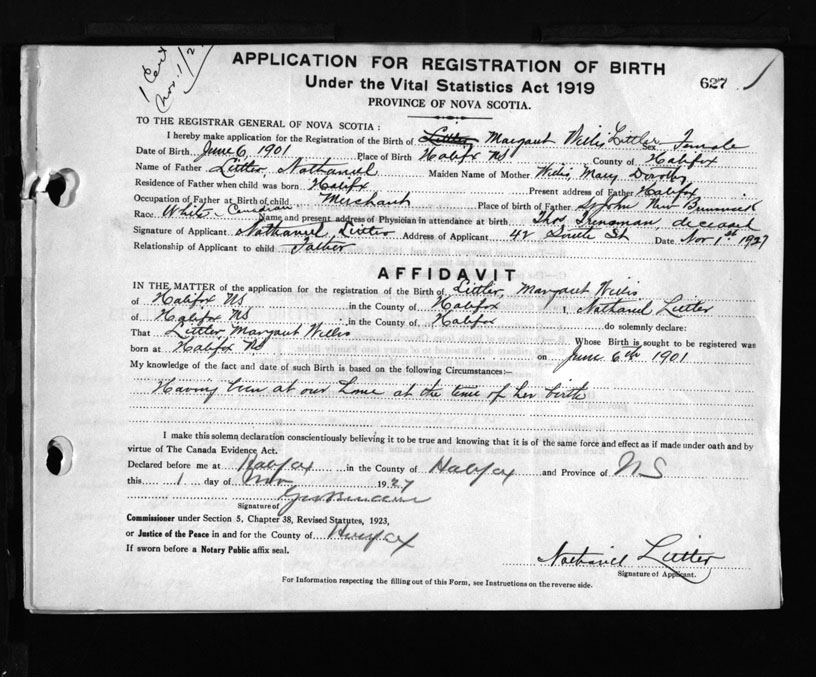 1 Cert
Nov. 1/27
APPLICATION FOR REGISTRATION OF BIRTH
Under the Vital Statistics Act 1919
627
PROVINCE OF NOVA SCOTIA.
TO THE REGISTRAR GENERAL OF NOVA SCOTIA :
I hereby make application for the Registration of the Birth of Littler Margaut Willis Littler Sex Female
Date of Birth June 6, 1901 Place of Birth Halifax NS County of Halifax
Name of Father Littler, Nathaniel Maiden Name of Mother Willis, Mary Dorothy
Residence of Father when child was born Halifax Present address of Father Halifax
Occupation of Father at Birth of child Merchant Place of birth of Father St John New Brunswick
Race White - Canadian Name and present address of Physician in attendance at birth Thos Trenaman, deceased
Signature of Applicant Nathaniel Littler Address of Applicant 42 South St Date Nov 1st 1927
Relationship of Applicant to child Father
AFFIDAVIT
IN THE MATTER of the application for the registration of the Birth of Littler, Margaut Willis
of Halifax NS in the County of Halifax I, Nathaniel Littler
of Halifax NS in the County of Halifax do solemnly declare:
That Littler Margaut Willis Whose Birth is sought to be registered was
born at Halifax NS on June 6th 1901
My knowledge of the fact and date of such Birth is based on the following Circumstances:-
Having been at our home at the time of her birth
I make this solemn declaration conscientiously believing it to be true and knowing that it is of the same force and effect as if made under oath and by
virtue of The Canada Evidence Act.
Declared before me at Halifax in the County of Halifax and Province of NS
this 1 day of Nov 1927
Signature of
Commissioner under Section 5, Chapter 38, Revised Statutes, 1923,
or Justice of the Peace in and for the County of Halifax
If sworn before a Notary Public affix seal.
Nathaniel Littler
Signature of Applicant.
For Information respecting the filling out of this Form, see Instructions on the reverse side.